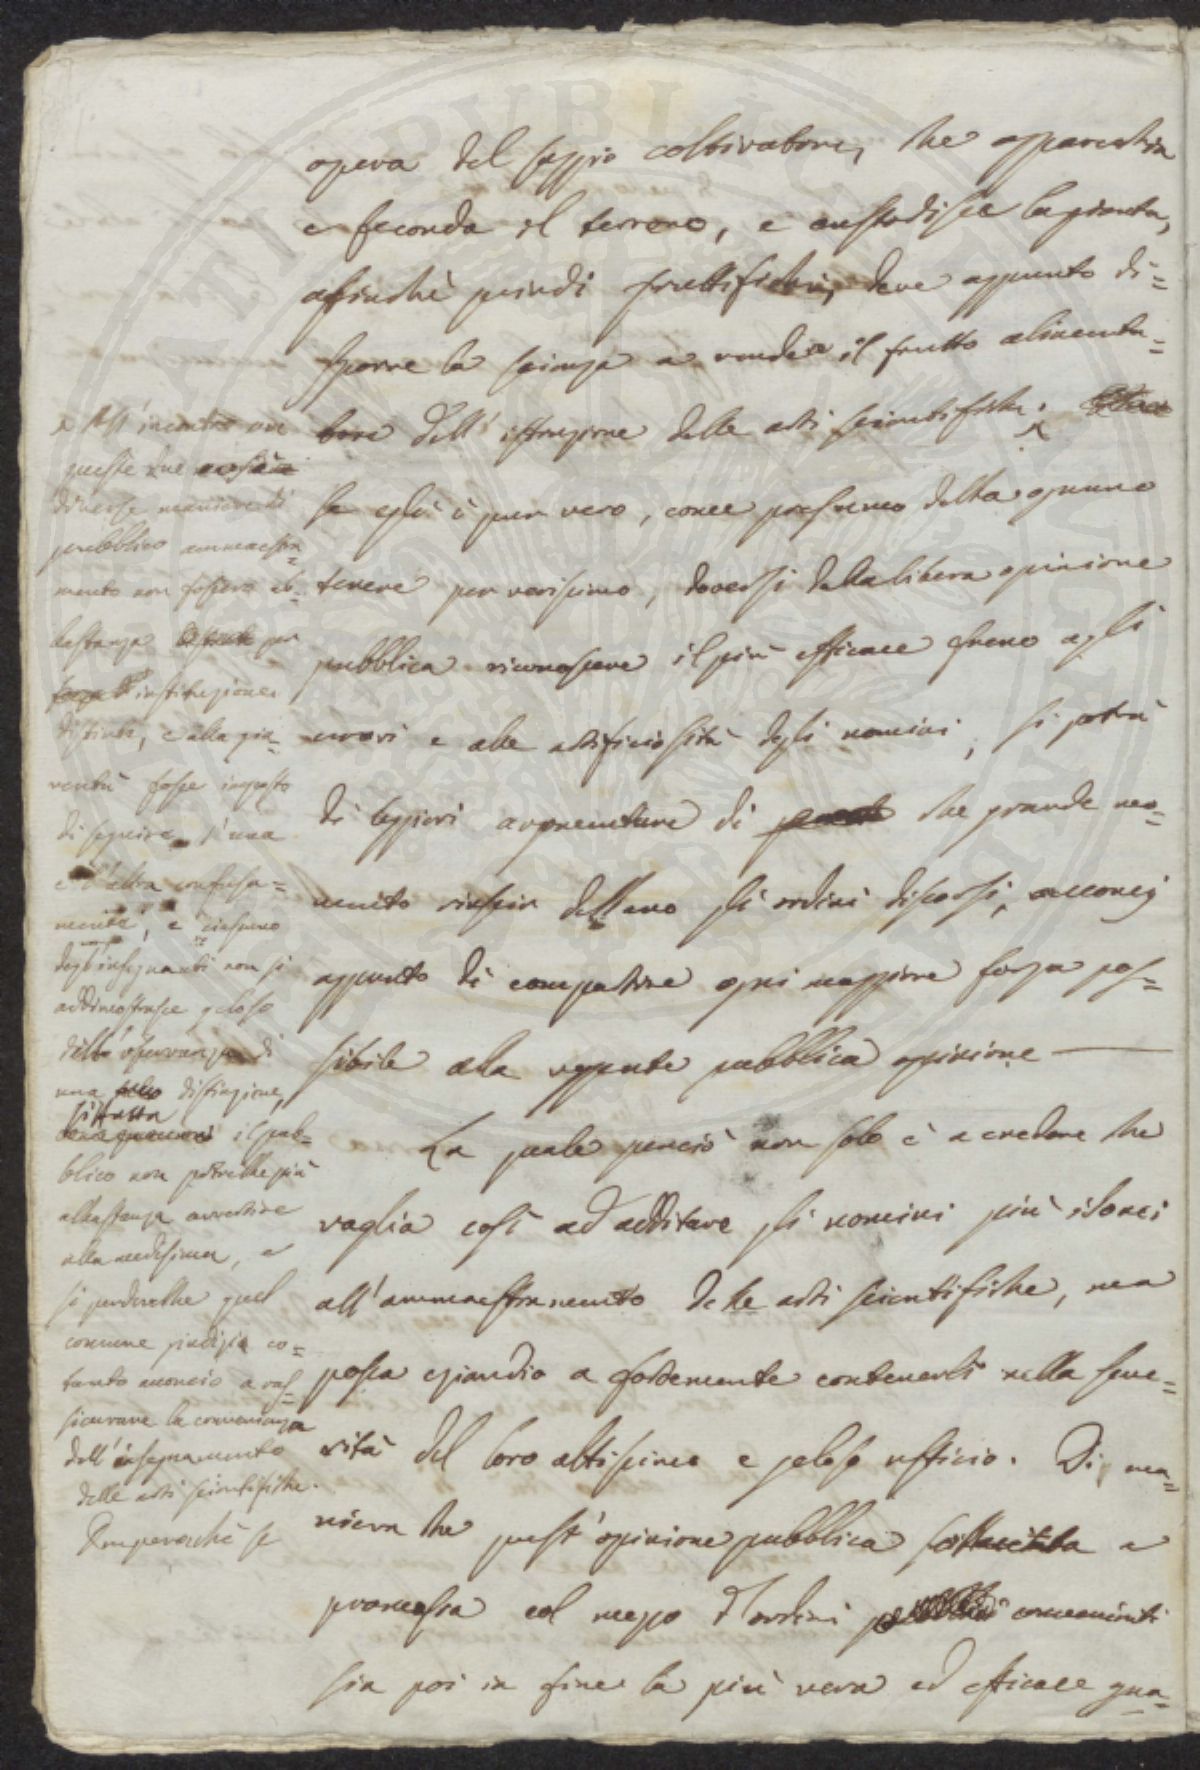 opera del saggio coltivatore, che apparecchia
e feconda il terreno, e custodisce la pianta,
affinchè quindi fruttifichi, deve appunto di=
sporre la scienza a rendere il frutto alimenta=
tore dell'istruzione delle arti scientifiche.
Se egli è pur vero, come presumo debba ognuno
tenere per verissimo, doversi dalla libera opinione
pubblica riconoscere il più efficace freno agli
errori e alle artificiosità degli uomini, si potrà
di leggieri argomentare di che grande mo=
mento riescir debbano gli ordini discorsi, acconcj
appunto di compartire ogni maggiore forza pos=
sibile alla reggente pubblica opinione
La quale perciò non solo è a credere che
vaglia così ad additare gli uomini più idonei
all'ammaestramento delle arti scientifiche, ma
possa eziandio a fortemente contenerli nella seve=
rità del loro altissimo e geloso ufficio. Di ma=
niera che quest'opinione pubblica sollecitata e
promossa col mezzo d'ordini convenienti
sia poi in fine la più vera ed efficace gua=
e All'incontro ove
queste due
diverse maniere di
pubblico ammaestra=
mento non fossero ab=
bastanza per
instituzione
distinte, e alla gio=
ventù fosse imposto
di seguire l'una
e l'altra confusa=
mente, e ciascuno
degl'insegnanti non si
addimostrasse geloso
della osservanza di
una distinzione,
siffatta il pub=
blico non potrebbe più
abbastanza avvertire
alla medesima, e
si perderebbe quel
comune giudizio co=
tanto acconcio a ras=
sicurare la convenienza
dell'insegnamento
delle arti scientifiche.
Imperocchè se